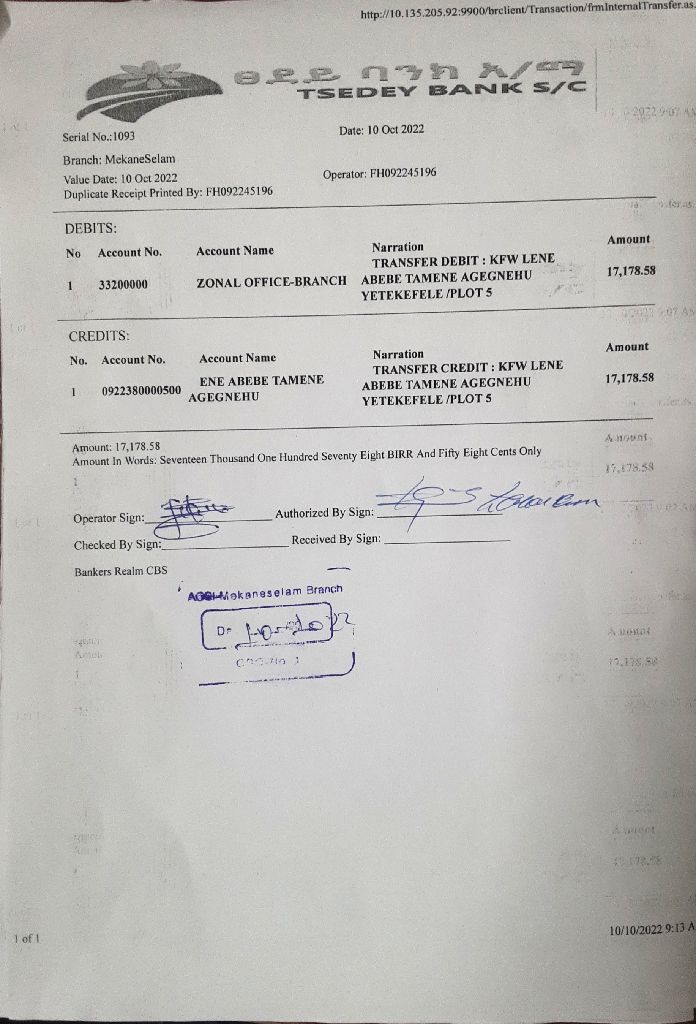 http://10.135.205.92:9900/brclient/Transaction/frmInternalTransfer.as
ፀደይ ባንክ አ/ማ
TSEDEY BANK S/C
Serial No.:1093
Date: 10 Oct 2022
Branch: MekaneSelam
Value Date: 10 Oct 2022
Operator: FH092245196
Duplicate Receipt Printed By: FH092245196
DEBITS:
No Account No. Account Name Narration Amount
1 33200000 ZONAL OFFICE-BRANCH TRANSFER DEBIT : KFW LENE 17,178.58
ABEBE TAMENE AGEGNEHU
YETEKEFELE /PLOT 5
CREDITS:
No. Account No. Account Name Narration Amount
1 0922380000500 ENE ABEBE TAMENE TRANSFER CREDIT : KFW LENE 17,178.58
AGEGNEHU ABEBE TAMENE AGEGNEHU
YETEKEFELE /PLOT 5
Amount: 17,178.58
Amount In Words: Seventeen Thousand One Hundred Seventy Eight BIRR And Fifty Eight Cents Only
Operator Sign: Authorized By Sign:
Checked By Sign: Received By Sign:
Bankers Realm CBS
Mekaneselam Branch
1 of 1
10/10/2022 9:13 A